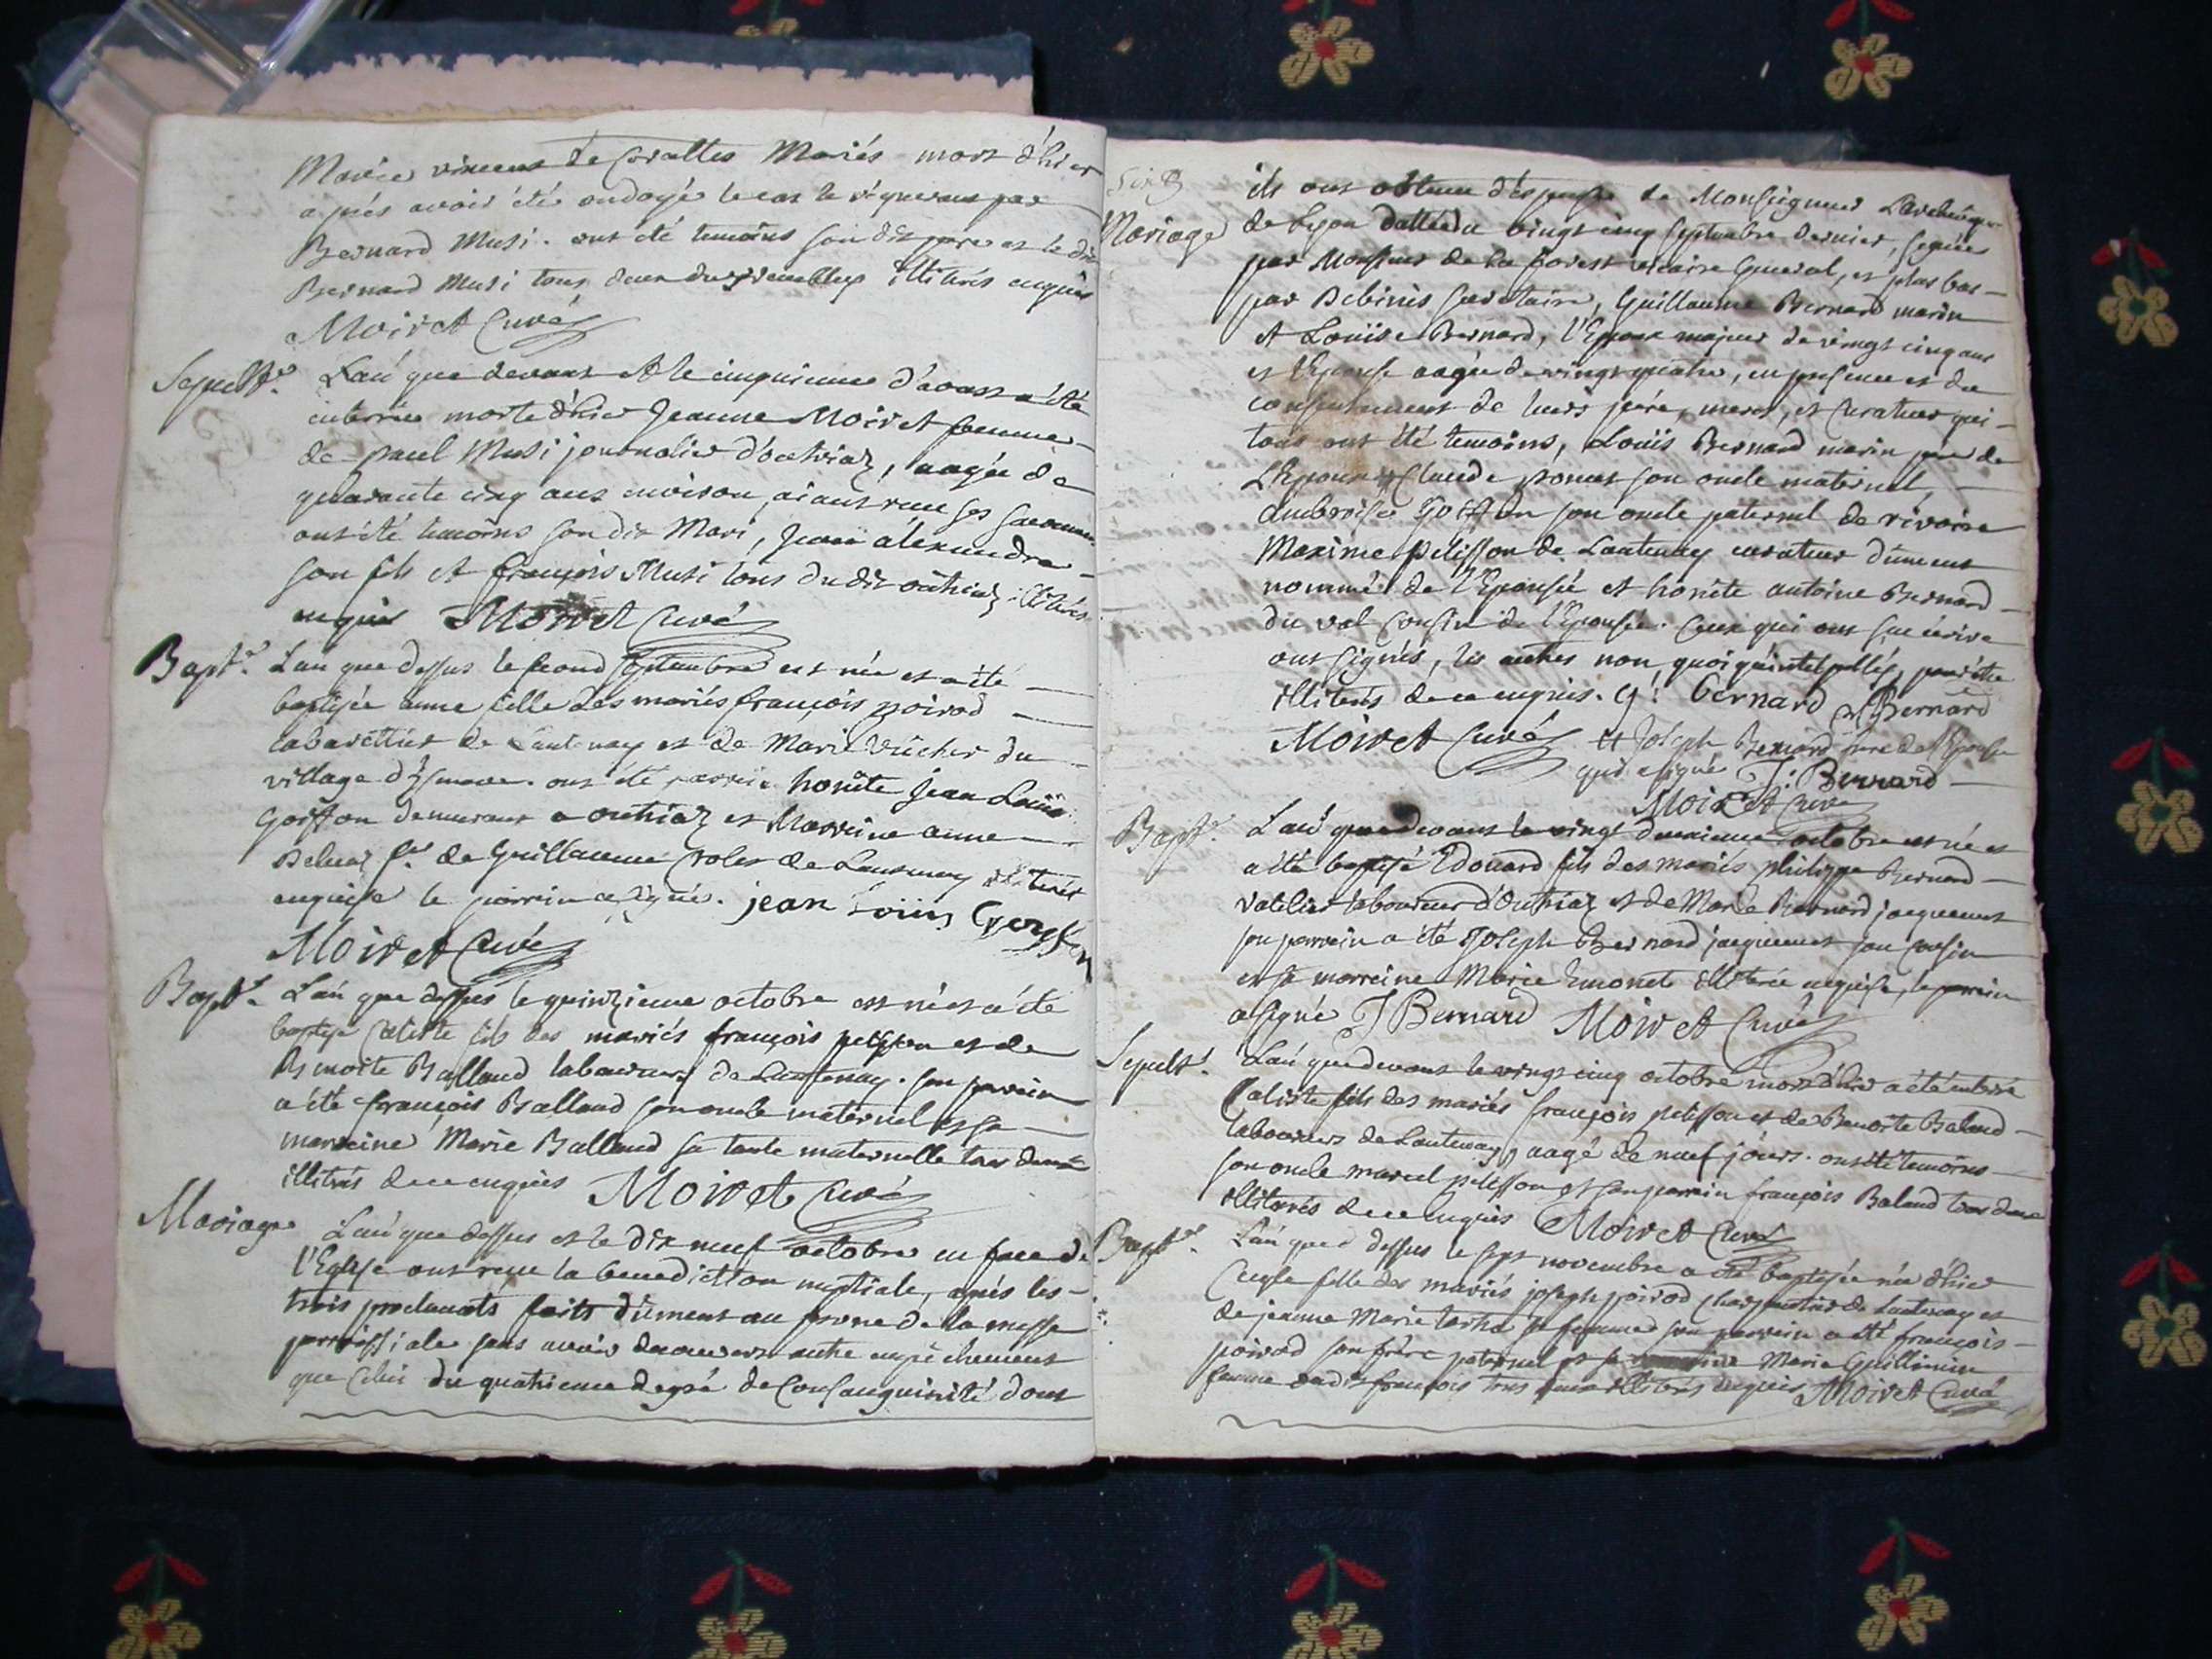 Marie vincent de Corcelles Mariés mort d'hier
après avoir été ondoyé le cas le requerant par
Bernard Musi. ont été temoins son dit pere et le dit
Bernard Musi tous deux illitérés enquis
Moiret Curé
Sepultre. L'an que devant et le cinquieme d'aoust a été
enterrée morte d'hier Jeanne Moiret femme
de paul Musi journalier d'outriaz, aagée de
quarante cinq ans environ, aiant reçu ses sacremens
ont été temoins son dit Mari, alexandre
son fils et françois Musi tous du dit outriaz illitérés
enquis Moiret Curé
Baptê. L'an que dessus le second septembre est née et a été
baptisée anne fille des mariés françois poirod
cabarettier de Lantenay et de Marie Vucher du
village d'Izenave. ont été parrein honête Jean Louis
Goiffon demeurant a outriaz et Marreine anne
fe. de Guillaume de Lantenay
enquise le parrein a signé. jean Loüis Goyffon
Moiret Curé
Baptê. L'an que dessus le quinzieme octobre est né et a été
baptisé Caliste fils des mariés françois pelisson et de
Benoite Balland laboureurs de Lantenay. son parrein
a été françois Balland son oncle maternel et sa
marreine Marie Balland sa tante maternelle tous deux
illitérés de ce enquis Moiret Curé
Mariage L'an que dessus et le dix neuf octobre en face de
l'Eglise ont reçu la benediction nuptiale, après les
trois proclamats faits dûment au prone de la messe
parroissiale sans avoir decouvert autre empêchement
que celui du quatrieme degré de Consanguinité dont
ils ont obtenu dispense de Monseigneur L'archevêque
Mariage de Lyon dattée du vingt cinq septembre dernier, signée
par Monsieur de La forest vicaire General, et plus bas
par secretaire, Guillaume Bernard marin
et Louise Bernard, l'Epoux majeur de vingt cinq ans
et l'Epouse aagée de vingt quatre, en presence et du
consentement de leurs pere, mere, et Curateur qui
tous ont été temoins, Louis Bernard marin pere de
L'Epoux, Claude son oncle maternel,
ambroise Goiffon son oncle paternel de
Maxime pelisson de Lantenay curateur dûment
nommé de l'Epousée et honête antoine Bernard
du val cousin de l'Epousée. Ceux qui ont sçu écrire
ont signés, les autres non, quoiqu'interpellés, pour être
illitérés de ce enquis. G: bernard Bernard
Moiret Curé et Joseph Bernard pere de l'Epouse
qui a signé J: Bernard
Moiret Curé
Baptê. L'an que devant le vingt deuxieme octobre est né et
a été baptisé Edouard fils des mariés philippe Bernard
laboureur d'Outriaz et de Marie Bernard jacquemet
son parrein a été Joseph Bernard jacquemet son cousin
et sa marreine Marie Emonet illitérée enquise, le parrein
a signé J Bernard Moiret Curé
Sepultê. L'an que devant le vingt cinq octobre mort d'hier a été enterré
Caliste fils des mariés françois pelisson et de Benoite Baland
laboureurs de Lantenay, aagé de neuf jours. ont été temoins
son oncle marcel pelisson et son parrein françois Baland tous deux
illitérés de ce enquis Moiret Curé
Baptê. L'an que dessus le sept novembre a été baptisée née d'hier
fille des mariés joseph poirod charpentier de Lantenay et
de jeanne Marie sa femme son parrein a été françois
poirod son frère paternel et sa Marie Guillermin
femme dudit françois tous deux illitérés enquis Moiret Curé